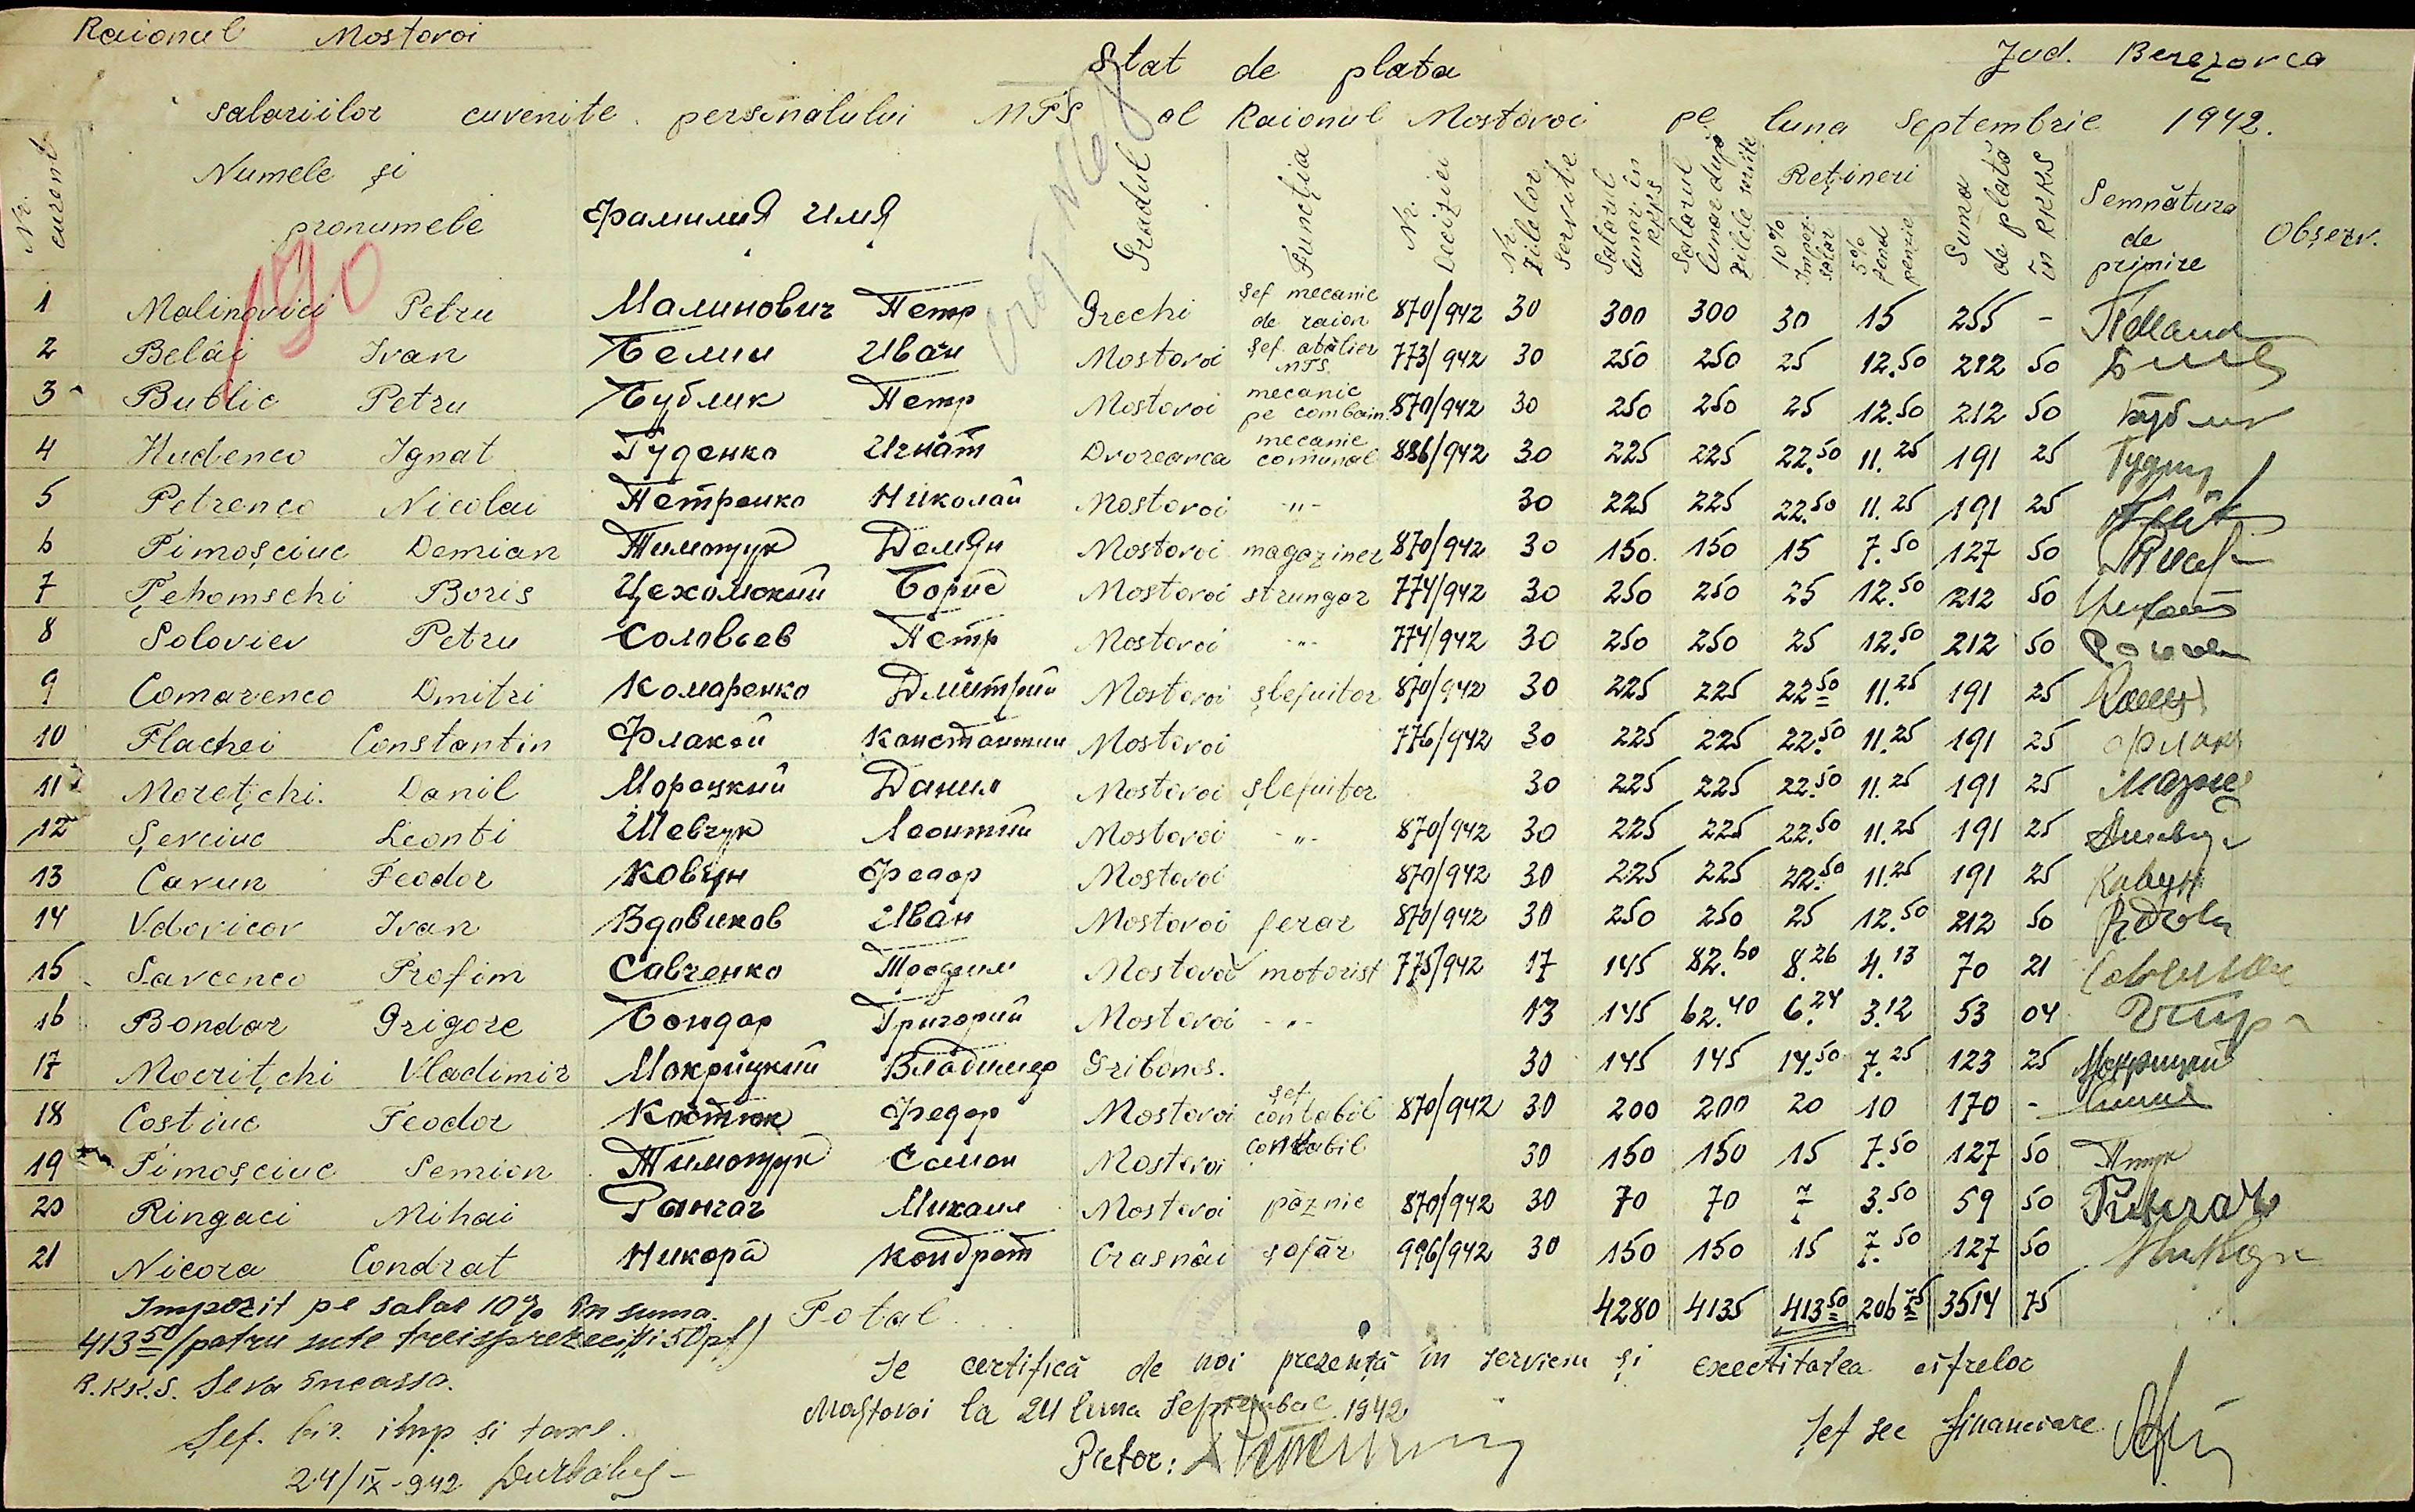 Raionul Mostovoi
Jud. Berezovca
Stat de plata
salariilor cuvenite personalului MTS al Raionul Mostovoi pe luna Septembrie 1942.
Nr. curent | Numele și pronumele | Фамилия Имя | Gradul | Funcția | Nr. Deciziei | Nr. zilelor servite | Salariul lunar în RKKS | Salariul lunar după zilele servite | Rețineri | 10% Impoz. salar | 5% fond penzie | Suma de plată în RKKS | Semnătura de primire | Observ.
190
1 Malinovici Petru Малинович Петр Grechi șef mecanic de raion 870/942 30 300 300 30 15 255 -
2 Belâi Ivan Белии Иван Mostovoi șef atălier MTS. 773/942 30 250 250 25 12.50 212 50
3 Bublic Petru Бублик Петр Mostovoi mecanic pe combain. 870/942 30 250 250 25 12.50 212 50
4 Hudenco Ignat Гуденко Игнат Dvoreanca mecanic comunal 886/942 30 225 225 22.50 11.25 191 25
5 Petrenco Nicolai Петренко Николай Mostovoi -"- 30 225 225 22.50 11.25 191 25
6 Timoșciuc Demian Тимощук Демян Mostovoi magaziner 870/942 30 150. 150 15 7.50 127 50
7 Țehomschi Boris Цехомский Борис Mostovoi strungar 774/942 30 250 250 25 12.50 212 50
8 Soloviev Petru Соловьев Петр Mostovoi -"- 774/942 30 250 250 25 12.50 212 50
9 Comarenco Dmitri Комаренко Дмитрий Mostovoi șlefuitor 870/942 30 225 225 22.50 11.25 191 25
10 Flachei Constantin Флакей Константин Mostovoi 776/942 30 225 225 22.50 11.25 191 25
11 Morețchi. Danil Морецкий Данил Mostovoi șlefuitor 30 225 225 22.50 11.25 191 25
12 Șevciuc Leonti Шевчук Леонтий Mostovoi -"- 870/942 30 225 225 22.50 11.25 191 25
13 Cavun Feodor Ковун Федор Mostovoi 870/942 30 225 225 22.50 11.25 191 25 Кавун
14 Vdovicov Ivan Вдовиков Иван Mostovoi ferar 870/942 30 250 250 25 12.50 212 50
15 Savcenco Trofim Савченко Трофим Mostovoi motorist 775/942 17 145 82.60 8.26 4.13 70 21
16 Bondar Grigore Бондар Григорий Mostovoi -"- 13 145 62.40 6.24 3.12 53 04
17 Mocrițchi Vladimir Мокрицкий Владимир Gribonos. 30 145 145 14.50 7.25 123 25 Мокрицкий
18 Costiuc Feodor Костюк Федор Mostovoi șef contabil 870/942 30 200 200 20 10 170 -
19 Timoșciuc Semion Тимощук Семон Mostovoi contabil 30 150 150 15 7.50 127 50
20 Ringaci Mihai Рингач Михаил Mostovoi păznic 870/942 30 70 70 7 3.50 59 50 Рингач
21 Nicora Condrat Никора Кондрат Crasnâi șofăr 996/942 30 150 150 15 7.50 127 50
Total 4280 4135 413.50 206.75 3514 75
Impozit pe salar 10% în suma.
413.50 (patru sute treisprezece și 50 pf)
R.K.K.S. Se va încassa.
Șef. bir. imp și taxe.
24/IX-942
Se certifică de noi prezența în serviciu și exactitatea cifrelor
Mostovoi la 24 luna Septembrie 1942
Pretor:
Șef sec financiare